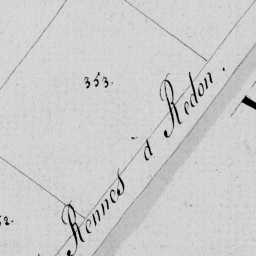 353.
Rennes à Redon.